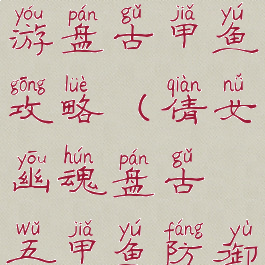 yóu pán gǔ jiǎ yú
游盘古甲鱼
gōng lüè qiàn nǚ
攻略（倩女
yōu hún pán gǔ
幽魂盘古
wǔ jiǎ yú fáng yù
五甲鱼防御